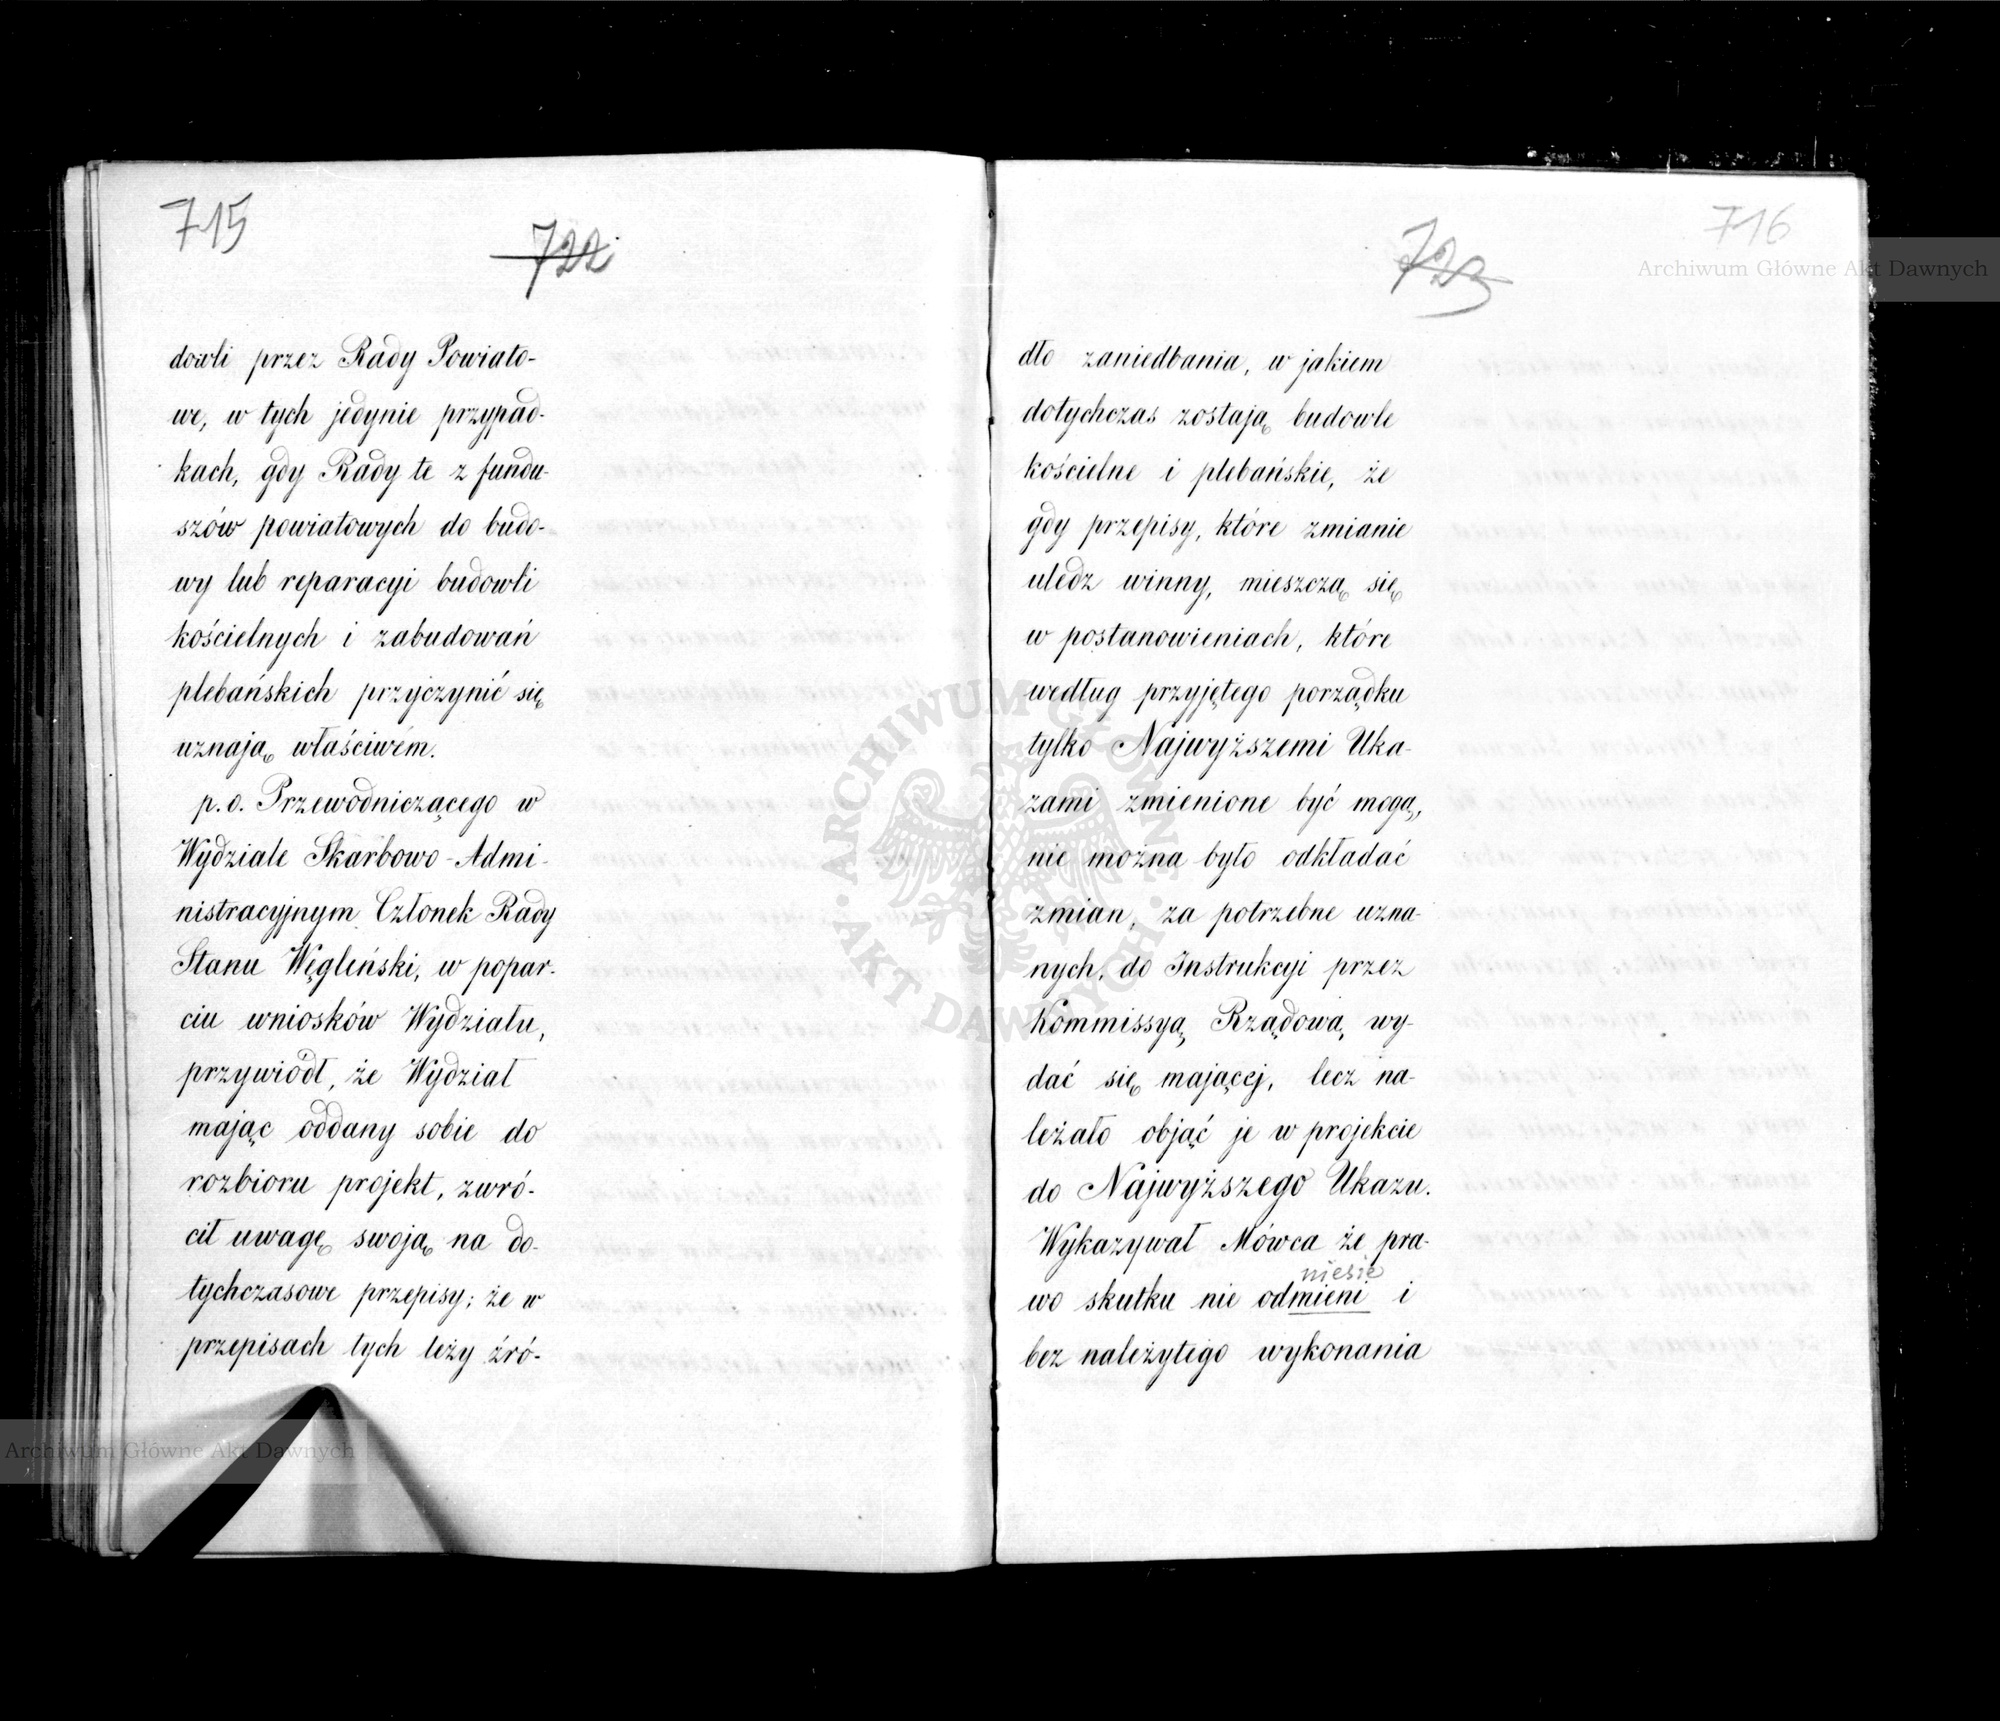 715
722
dowli przez Rady Powiato-
we, w tych jedynie przypad-
kach, gdy Rady te z fundu-
szów powiatowych do budo-
wy lub reparacyi budowli
kościelnych i zabudowań
plebańskich przyczynić się
uznają właściwém.
p. o. Przewodniczącego w
Wydziale Skarbowo-Admi-
nistracyjnym Członek Rady
Stanu Węgleński, w popar-
ciu wniosków Wydziału,
przywiódł, że Wydział
mając oddany sobie do
rozbioru projekt, zwró-
cił uwagę swoją na do-
tychczasowe przepisy; że w
przepisach tych leży źró-
716
723
dło zaniedbania, w jakiem
dotychczas zostają budowle
kościelne i plebańskie, że
gdy przepisy, które zmianie
uledz winny, mieszczą się
w postanowieniach, które
według przyjętego porządku
tylko Najwyższemi Uka-
zami zmienione być mogą,
nie można było odkładać
zmian, za potrzebne uzna-
nych, do Instrukcyi przez
Kommissyą Rządową wy-
dać się mającej, lecz na-
leżało objąć je w projekcie
do Najwyższego Ukazu.
Wykazywał Mówca że pra-
niesie
wo skutku nie odmieni i
bez należytego wykonania
Archiwum Główne Akt Dawnych
Archiwum Główne Akt Dawnych
ARCHIWUM GŁÓWNE
AKT DAWNYCH